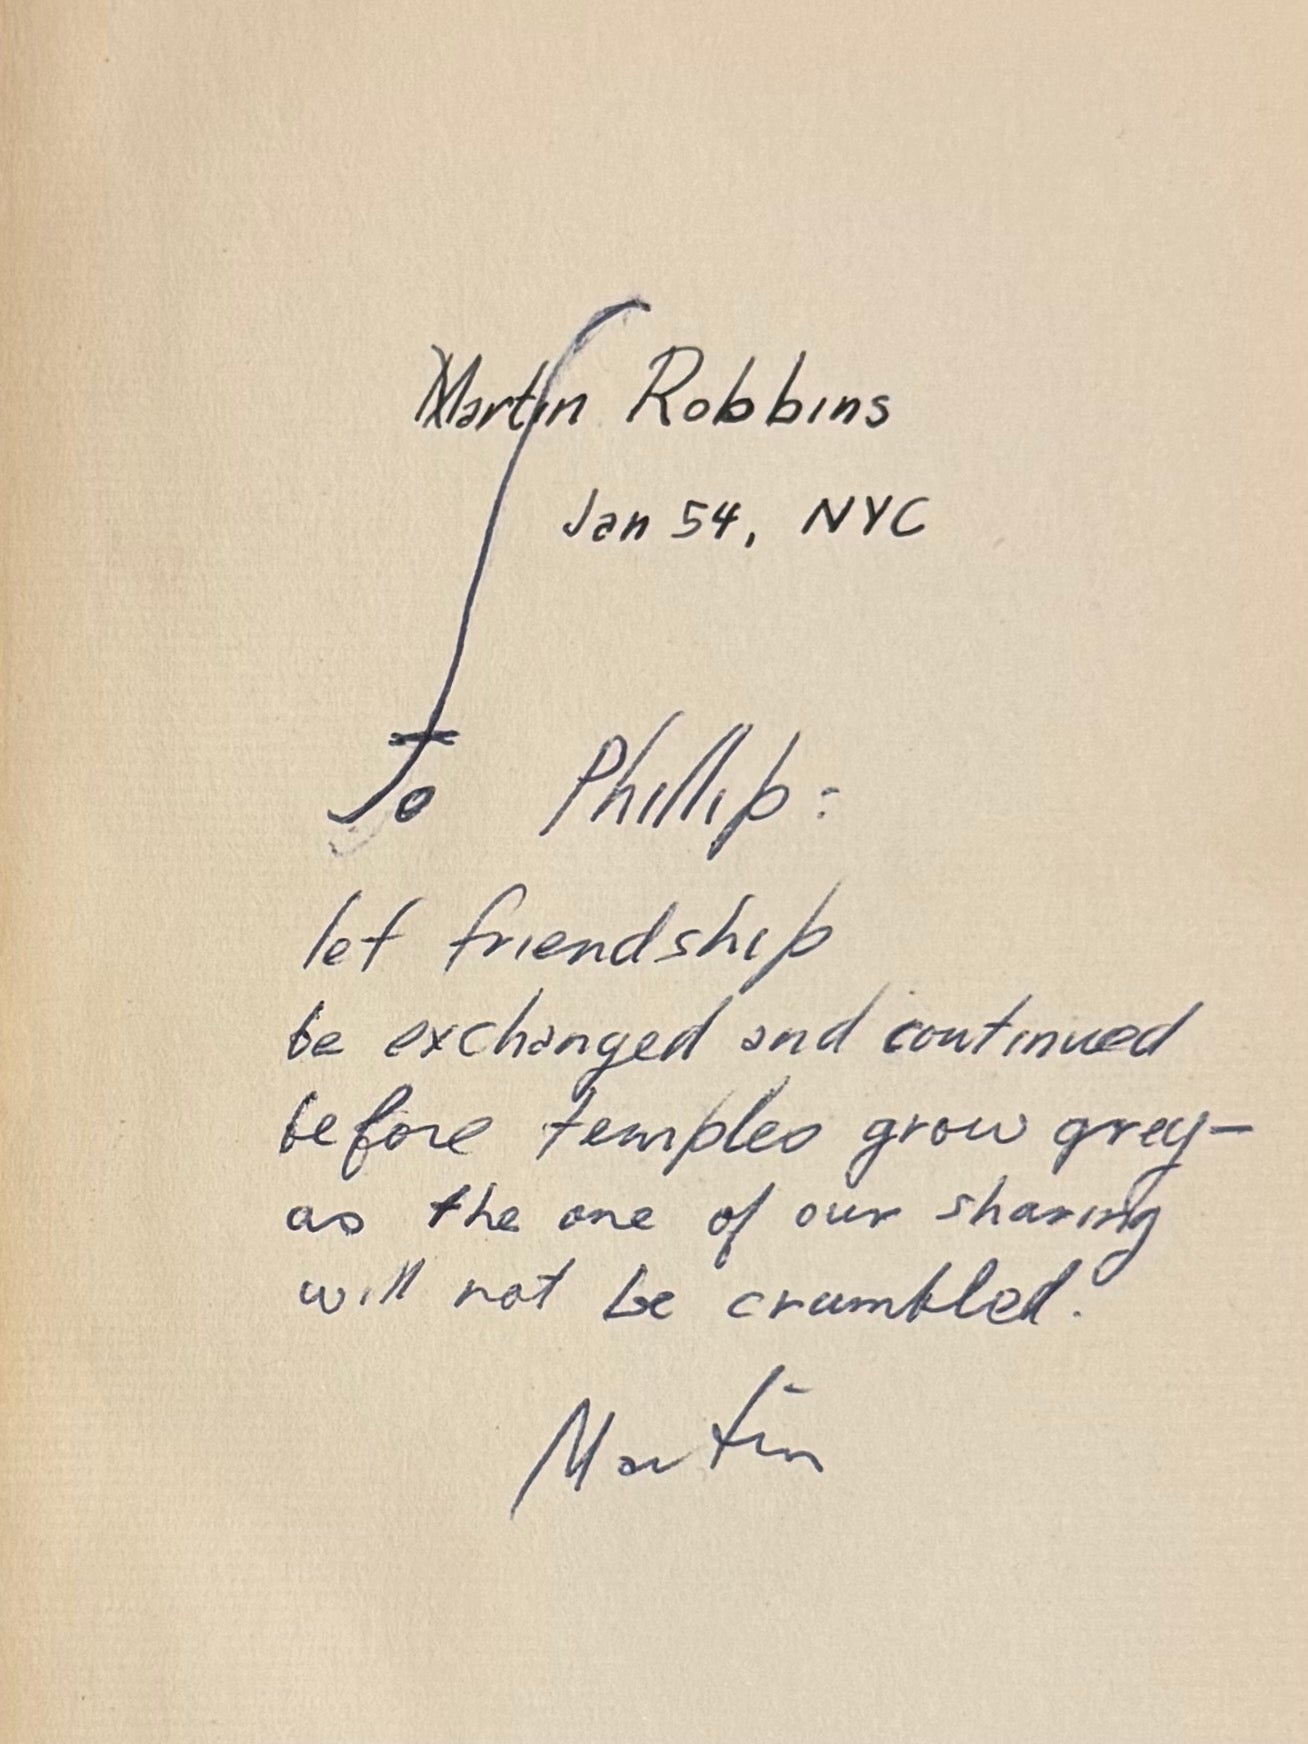 Martin Robbins
Jan 54, NYC
To Phillip:
let friendship
be exchanged and continued
before temples grow grey—
as the one of our sharing
will not be crumbled.
Martin